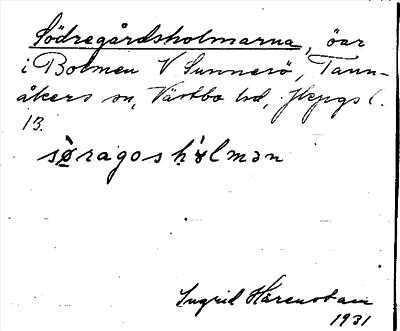 Södregårdsholmarna, öar
i Bolmen V Sunnerö, Tann-
åkers sn, Västbo hd, Jkpgs l.
13.
Ingrid Härenstam
1931